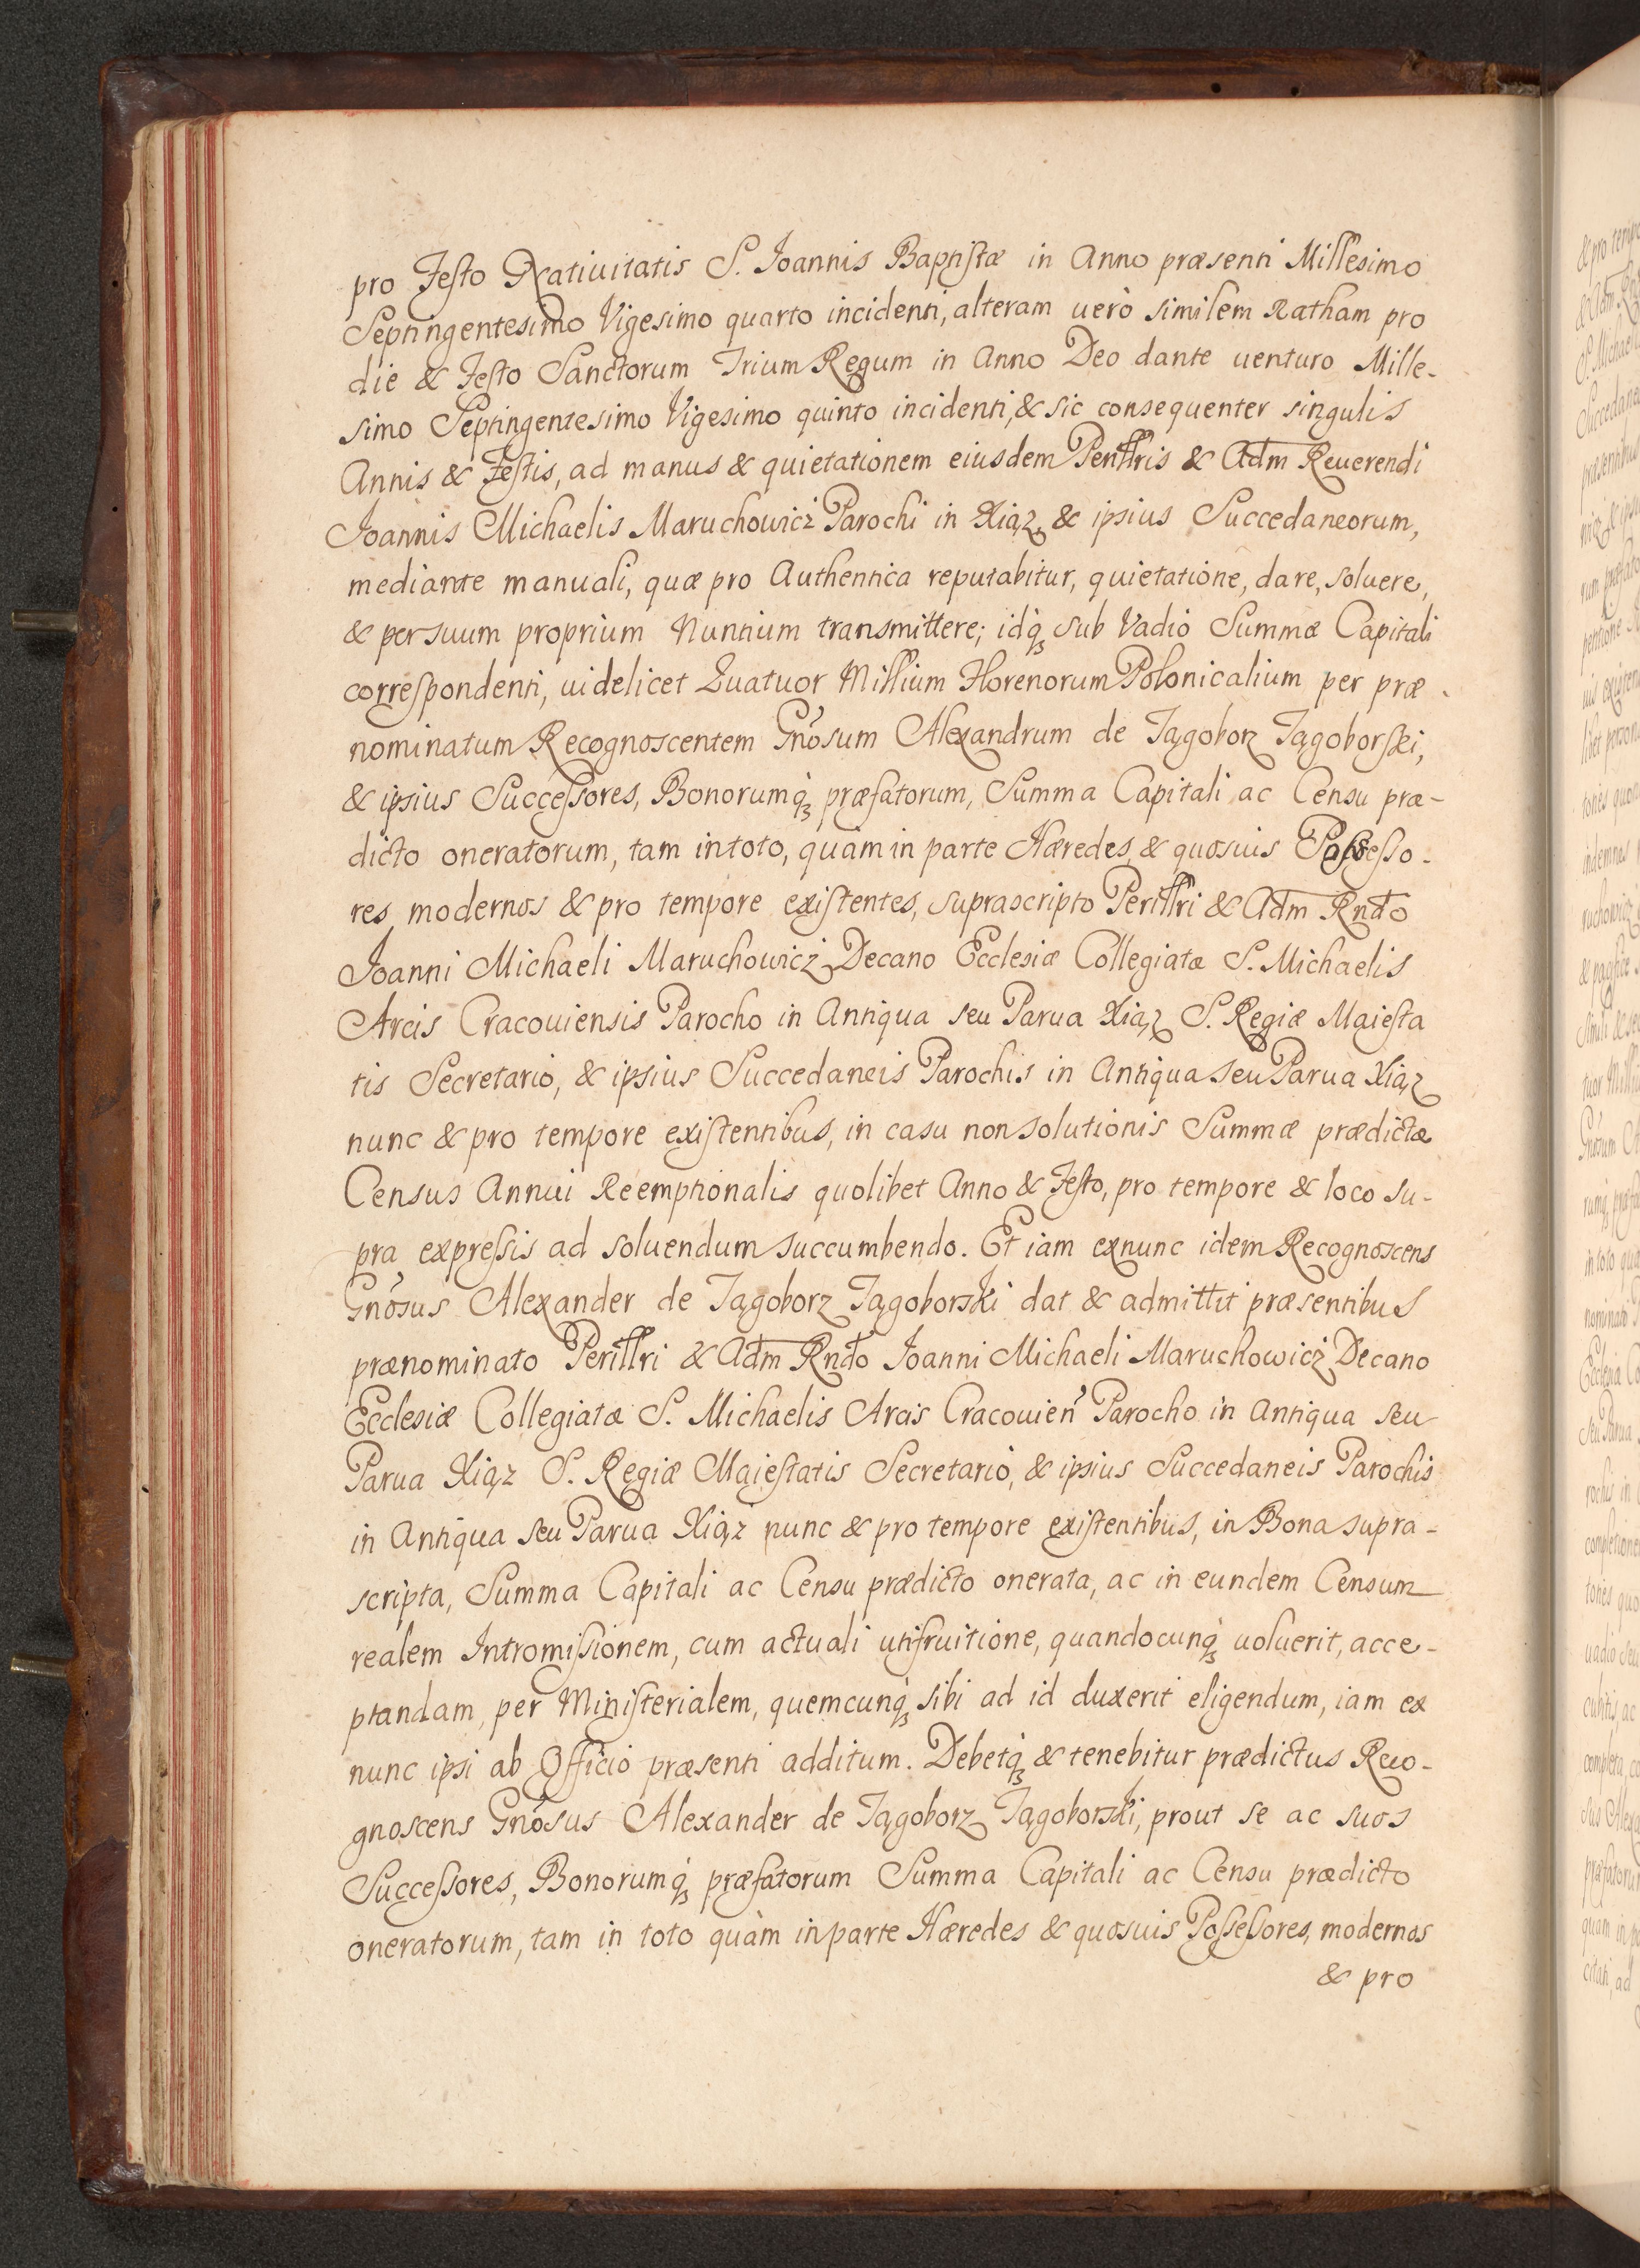 pro Festo Natiuitatis S. Joannis Baptistæ in Anno præsenti Millesimo
Septingentesimo Vigesimo quarto incidenti, alteram uerò similem Ratham pro
die & Festo Sanctorum Trium Regum in Anno Deo dante uenturo Mille-
simo Septingentesimo Vigesimo quinto incidenti, & sic consequenter singulis
Annis & Festis, ad manus & quietationem eiusdem Perillris & Adm Reuerendi
Joannis Michaelis Maruchowicz Parochi in Xiąz, & ipsius Succedaneorum,
mediante manuali, quæ pro Authentica reputabitur, quietatione, dare, soluere,
& per suum proprium Nuntium transmittere; idq; sub Vadio Summæ Capitali
correspondenti, uidelicet Quatuor Millium Florenorum Polonicalium per præ-
nominatum Recognoscentem Gnosum Alexandrum de Jągoborz Jągoborski,
& ipsius Successores, Bonorumq; præfatorum, Summa Capitali ac Censu præ-
dicto oneratorum, tam in toto, quàm in parte Hæredes, & quosuis Possesso-
res modernos & pro tempore existentes, suprascripto Perillri & Adm Rndo
Joanni Michaeli Maruchowicz Decano Ecclesiæ Collegiatæ S. Michaelis
Arcis Cracouiensis Parocho in Antiqua seu Parua Xiąz S. Regiæ Maiesta
tis Secretario, & ipsius Succedaneis Parochis in Antiqua seu Parua Xiąz
nunc & pro tempore existentibus, in casu non solutionis Summæ prædictæ
Census Annui Reemptionalis quolibet Anno & Festo, pro tempore & loco su-
pra expressis ad soluendum succumbendo. Et iam exnunc idem Recognoscens
Gnosus Alexander de Jągoborz Jągoborski dat & admittit præsentibus
prænominato Perillri & Adm Rndo Joanni Michaeli Maruchowicz Decano
Ecclesiæ Collegiatæ S. Michaelis Arcis Cracouien Parocho in Antiqua seu
Parua Xiąz S. Regiæ Maiestatis Secretario, & ipsius Succedaneis Parochis
in Antiqua seu Parua Xiąz nunc & pro tempore existentibus, in Bona supra-
scripta, Summa Capitali ac Censu prædicto onerata, ac in eundem Censum
realem Intromissionem, cum actuali utifruitione, quandocunq; uoluerit, acce-
ptandam, per Ministerialem, quemcunq; sibi ad id duxerit eligendum, iam ex
nunc ipsi ab Officio præsenti additum. Debetq; & tenebitur prædictus Reco-
gnoscens Gnosus Alexander de Jągoborz Jągoborski, prout se ac suos
Successores, Bonorumq; præfatorum Summa Capitali ac Censu prædicto
oneratorum, tam in toto quàm in parte Hæredes & quosuis Possessores, modernos
& pro